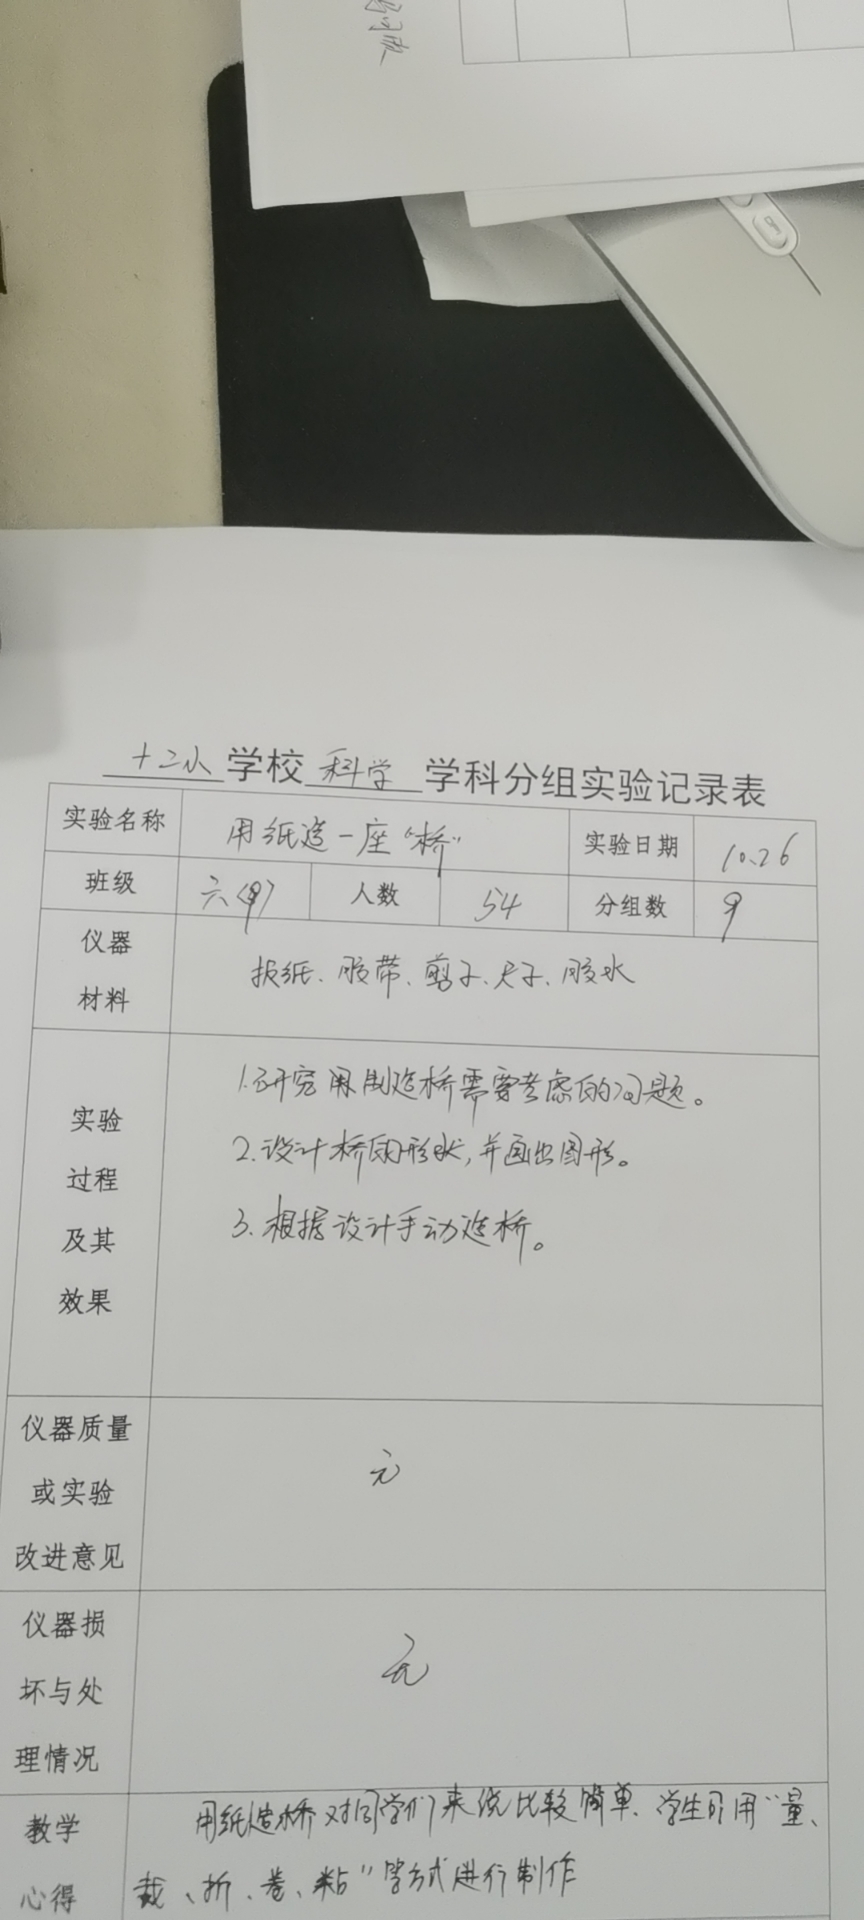 十二小学校科学学科分组实验记录表
实验名称 用纸造一座“桥” 实验日期 10.26
班级 六(9) 人数 54 分组数 9
仪器材料 报纸、胶带、剪子、尺子、胶水
实验过程及其效果
1.研究用制造桥需要考虑的问题。
2.设计桥的形状,并画出图形。
3.根据设计手动造桥。
仪器质量或实验改进意见 无
仪器损坏与处理情况 无
教学心得 用纸造桥对同学们来说比较简单、学生可用“量、
裁、折、卷、粘”等方式进行制作